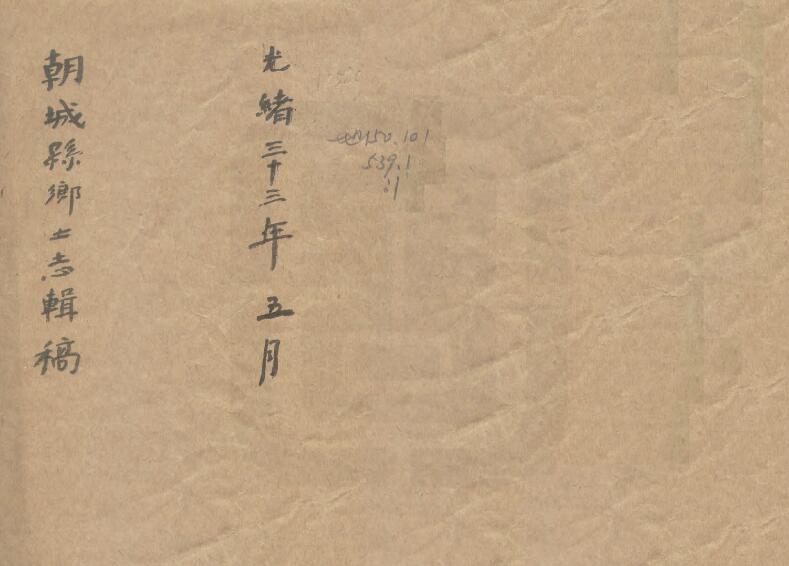 光緒三十三年五月
朝城縣鄉土志輯稿
450.101
539.1
:1